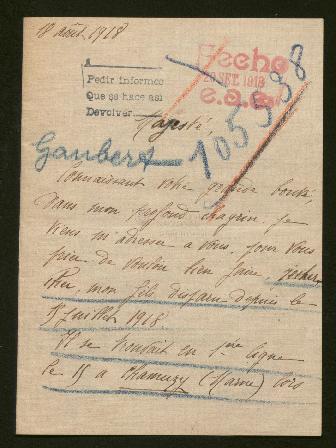 18 août 1918
Fecho
20 SET. 1918
Pedir informes
Que se hace asi
Devolver
Majesté
Gaubert 105588
Connaissant votre grande bonté,
dans mon profond chagrin, je
viens m'adresser a vous, pour vous
prier de vouloir bien faire, rechercher
mon fils disparu depuis le
15 juillet 1918.
Il se trouvait en 1ère ligne
le 15 a Chamuzy (Marne) lors